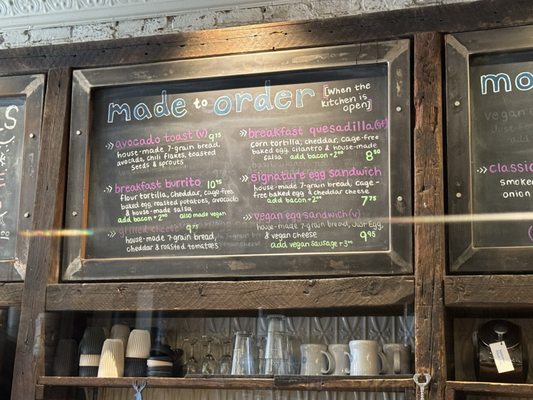 made to order
[When the
kitchen is
open]
>> avocado toast (v) 9.75
house-made 7-grain bread,
avocado, chili flakes, toasted
seeds & sprouts
>> breakfast burrito 10.75
flour tortilla, cheddar, cage-free
baked egg, roasted potatoes, avocado
& house-made salsa
add bacon +2.00 also made vegan
>> grilled cheese 9.75
house-made 7-grain bread,
cheddar & roasted tomatoes
>> breakfast quesadilla (gf)
corn tortilla, cheddar, cage-free
baked egg, cilantro & house-made
salsa add bacon +2.00 8.50
>> signature egg sandwich
house-made 7-grain bread, cage-
free baked egg & cheddar cheese
add bacon +2.00 7.75
>> vegan egg sandwich (v)
house-made 7-grain bread, Just Egg,
& vegan cheese 9.95
add vegan sausage +3.00
mo
vegan
>> classic
smoke
onion